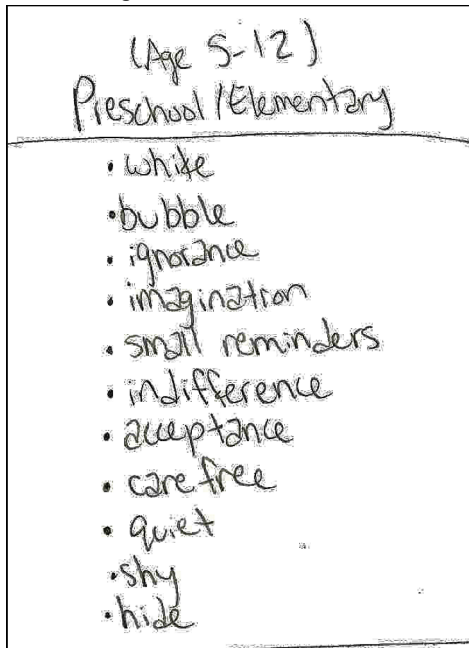 (Age 5-12)
Preschool/Elementary
• white
• bubble
• ignorance
• imagination
• small reminders
• indifference
• acceptance
• carefree
• quiet
• shy
• hide